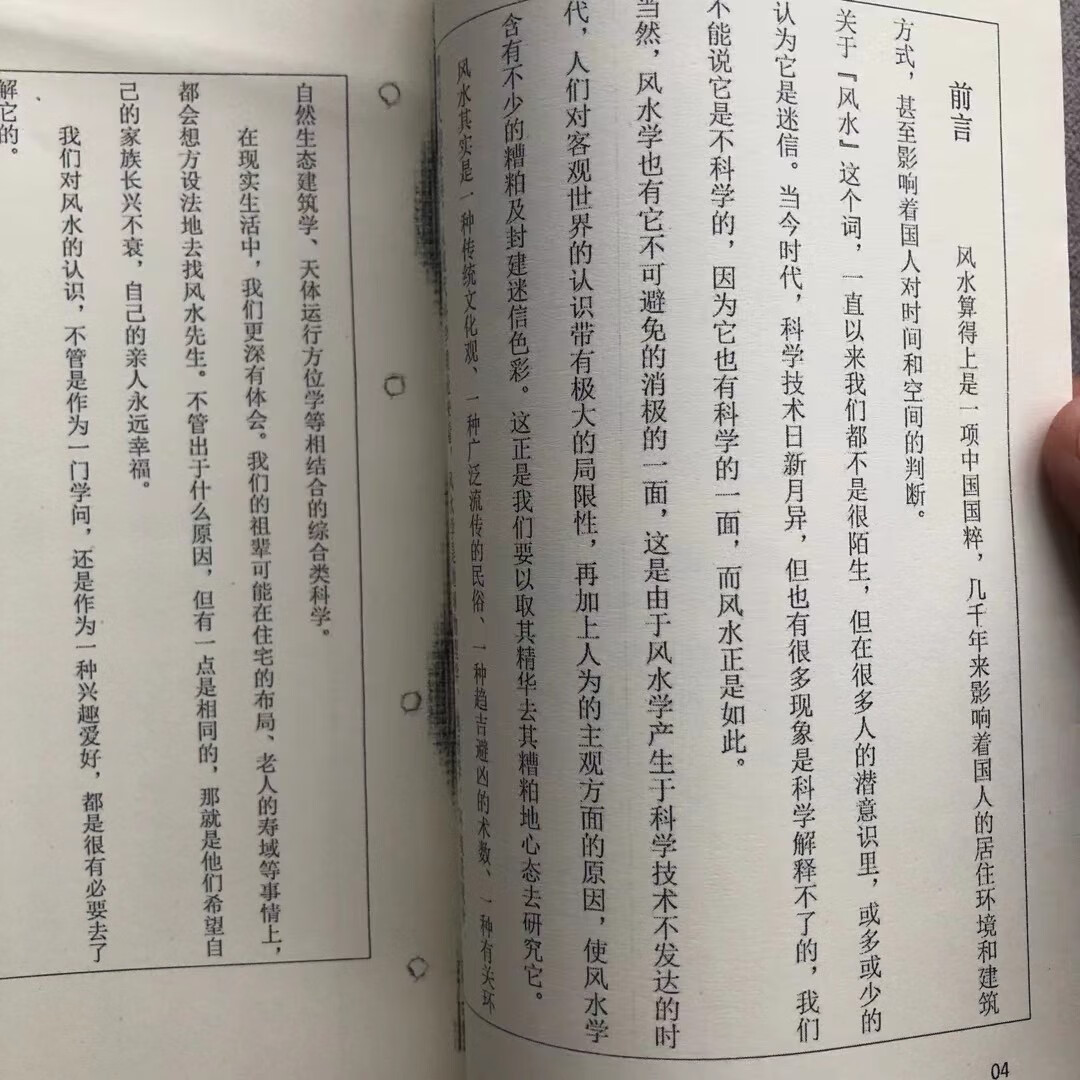 前言
风水算得上是一项中国国粹，几千年来影响着国人的居住环境和建筑
方式，甚至影响着国人对时间和空间的判断。
关于『风水』这个词，一直以来我们都不是很陌生，但在很多人的潜意识里，或多或少的
认为它是迷信。当今时代，科学技术日新月异，但也有很多现象是科学解释不了的，我们
不能说它是不科学的，因为它也有科学的一面，而风水正是如此。
当然，风水学也有它不可避免的消极的一面，这是由于风水学产生于科学技术不发达的时
代，人们对客观世界的认识带有极大的局限性，再加上人为的主观方面的原因，使风水学
含有不少的糟粕及封建迷信色彩。这正是我们要以取其精华去其糟粕地心态去研究它。
风水其实是一种传统文化观、一种广泛流传的民俗、一种趋吉避凶的术数、一种有关环
04
自然生态建筑学、天体运行方位学等相结合的综合类科学。
在现实生活中，我们更深有体会。我们的祖辈可能在住宅的布局、老人的寿域等事情上，
都会想方设法地去找风水先生。不管出于什么原因，但有一点是相同的，那就是他们希望自
己的家族长兴不衰，自己的亲人永远幸福。
我们对风水的认识，不管是作为一门学问，还是作为一种兴趣爱好，都是很有必要去了
解它的。